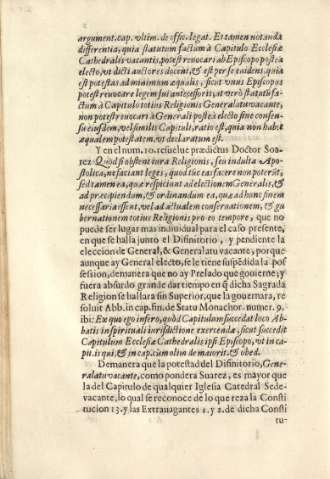 argument. cap. vltim. de offic. legat. Et tamen notanda
differentia, quia statutum factum à Capitulo Ecclesiæ
Cathedralis vacantis, potest revocari ab Episcopo postea
electo, vt dicti auctores docent, & est per se euidens, quia
est potestas ad minimum æqualis, sicut vnus Episcopus
potest revocare legem sui antecessoris, at verò statutū fa-
ctum à Capitulo totius Religionis Generalatu vacante,
non potest revocari à Generali postea electo sine consen-
su eiusdem, vel similis Capituli, ratio est, quia non habet
æqualem potestatem, vt declaratum est.
Y en el num. 10. resuelue prædictus Doctor Soa-
rez: Quod si obstent iura Religionis, seu indulta Apo-
stolica, ne faciant leges, quod tūc eas facere non poterūt,
sed tamen ea, quæ respiciunt ad electionem Generalis, &
ad præcipiendum, & ordinandum ea, quæ ad hunc finem
necessaria essent, vel ad actualem conseruationem, & gu-
bernationem totius Religionis pro eo tempore, que no
puede ser lugar mas indiuidual para el caso presente,
en que se halla junto el Difinitorio, y pendiente la
eleccion de General, & Generalatu vacante, porque
aunque ay General electo, se le tiene suspēdida la pos
session, demanera que no ay Prelado que gouierne; y
fuera absurdo grande dar tiempo en q̃ dicha Sagrada
Religion se hallara sin Superior, que la gouernara, re-
soluit Abb. in cap. fin. de Statu Monachor. numer. 9.
ibi: Ex quo ego infero, quòd Capitulum succedat loco Ab-
batis in spirituali iurisdictione exercenda, sicut succedit
Capitulum Ecclesiæ Cathedralis ipsi Episcopo, vt in ca-
pit. is qui, & in cap. cùm olim de maiorit. & obed.
Demanera que la potestad del Difinitorio, Gene-
ralatu vacante, como pondera Suarez, es mayor que
la del Capitulo de qualquier Iglesia Catedral Sede-
vacante, lo qual se reconoce de lo que reza la Consti
tucion 13. y las Extrauagantes 1. y 2. de dicha Consti
tu-